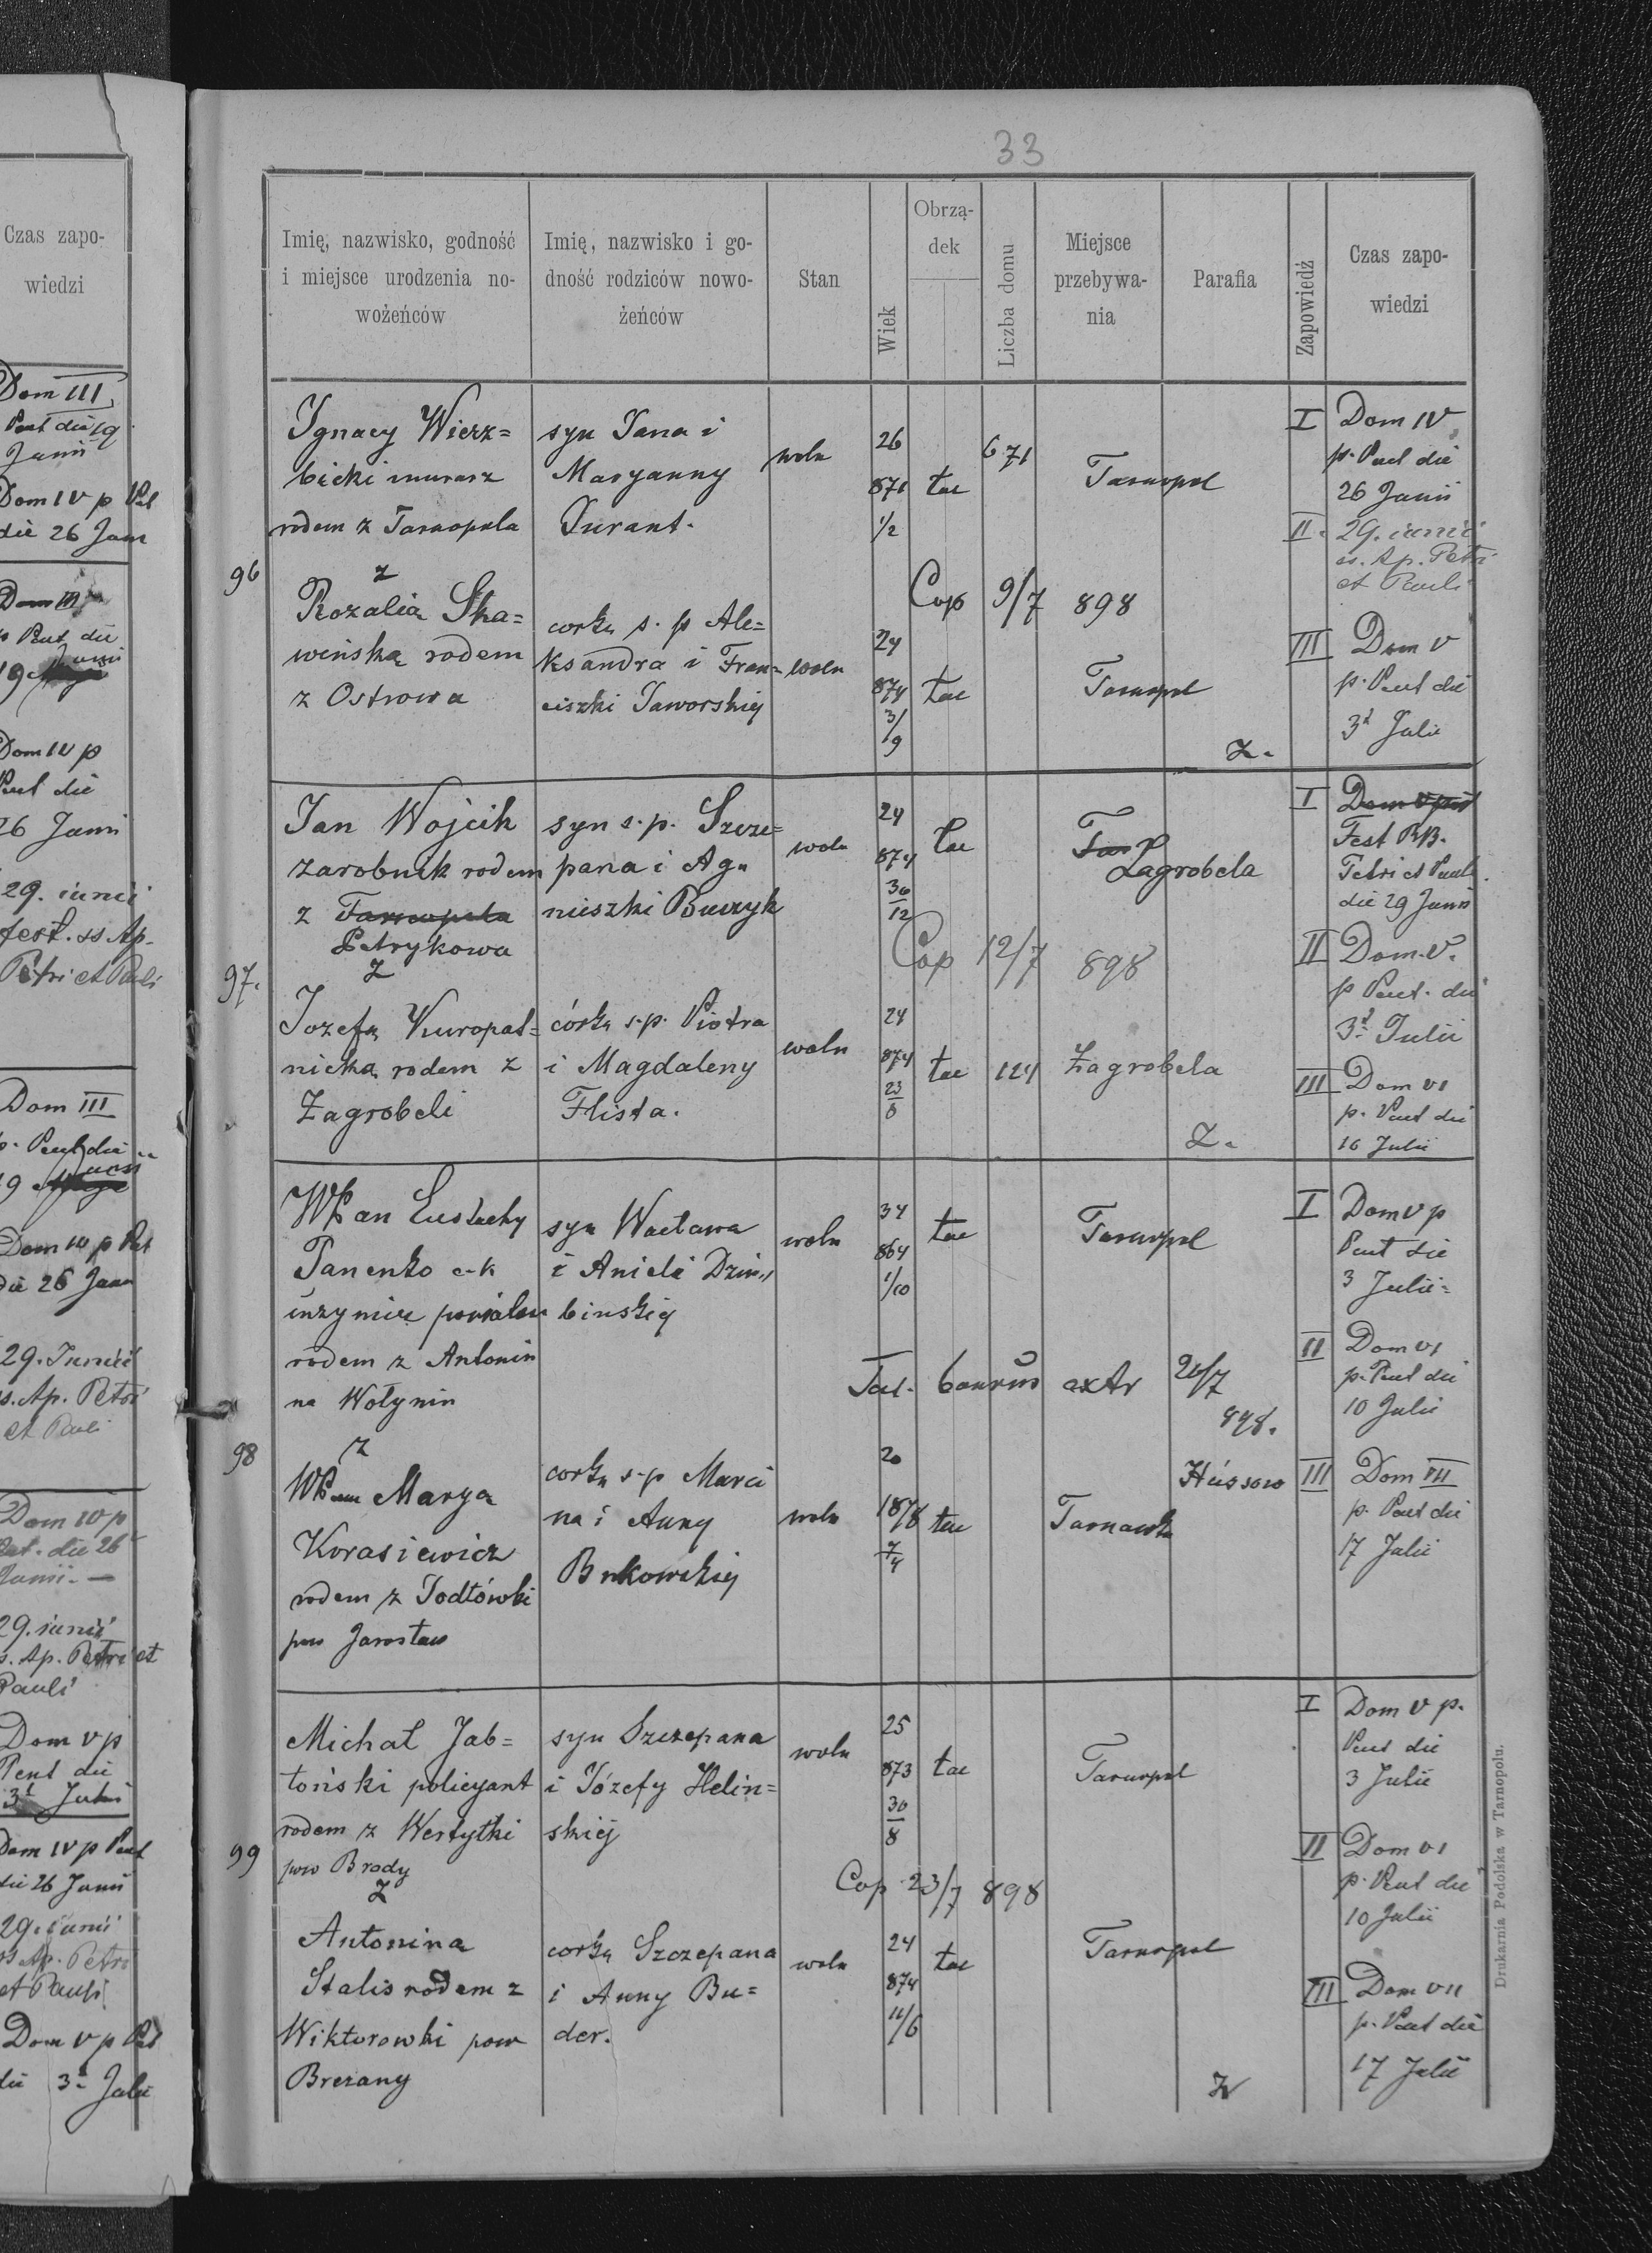 33
Czas zapo-
wiedzi
Dom III
Pent die 19
Junii
Dom IV p Pet
die 26 Jun
Dom III
p Pent die
19 Junii
Dom IV p
Pent die
26 Junii
29. iunii
fest. ss Ap.
Petri et Pauli
Dom III
p. Pent die
19 Junii
Dom IV p Pet
die 26 Jun
29. Junii
ss. Ap. Petri
et Pauli
Dom IV p
Pent. die 26
Junii. —
29. iunii
ss. Ap. Petri et
Pauli
Dom V p
Pent die
3t Julii
Dom IV p Pent
die 26 Junii
29. iunii
ss Ap. Petri
et Pauli
Dom V p Pet
die 3. Julii
Imię, nazwisko, godność
i miejsce urodzenia no-
wożeńców
Imię, nazwisko i go-
dność rodziców nowo-
żeńców
Stan
Wiek
Obrzą-
dek
Liczba domu
Miejsce
przebywa-
nia
Parafia
Zapowiedź
Czas zapo-
wiedzi
96
Ignacy Wierz=
bicki murarz
rodem z Tarnopola
z
Rozalią Ska=
wińską rodem
z Ostrowa
syn Jana i
Maryanny
Durant.
corką s. p Ale=
ksandra i Fran=
ciszki Jaworskiej
woln
woln
26
871
1/2
24
874
3/9
łac
łac
671
Cop 9/7 898
Tarnopol
Tarnopol
Z.
I Dom IV
p. Pent die
26 Junii
II. 29. iunii
ss. Ap. Petri
et Pauli
III Dom V
p. Pent die
3t Julii
97.
Jan Wojcik
zarobnik rodem
z Tarnopola
Petrykowa
z
Jozefą Kuropat=
nicką rodem z
Zagrobeli
syn s.p. Szcze=
pana i Ag=
nieszki Buczyk
córką s.p. Piotra
i Magdaleny
Flista.
woln
woln
24
874
30/12
24
874
23/8
łac
łac
124
Cop 12/7 898
Tar
Zagrobela
Zagrobela
Z.
I Dom V post
Fest BB.
Petri et Pauli.
die 29 Junii
II Dom. V.
p Pent. die
3t Julii
III Dom VI
p. Pent die
16 Julii
98
WPan Eustachy
Panenko c-k
inżynier powiatow
rodem z Antonin
na Wołyniu
z
WPan Marya
Korasiewicz
rodem z Jodłówki
pow Jarosław
syn Wacława
i Anieli Dzim=
binskiej
corką s-p Marci
na i Anny
Bukowskiej
woln
woln
34
864
1/10
20
1878
7/4
łac
łac
Tarnopol
Tarnawka
extr 20/7
898.
Hussow
I Dom V p
Pent die
3 Julii=
II Dom VI
p. Pent die
10 Julii
III Dom VII
p. Pent die
17 Julii
99
Michał Jab=
łoński policyant
rodem z Wertyłki
pow Brody
z
Antonina
Stalis rodem z
Wiktorowki pow
Brezany
syn Szczepana
i Józefy Helin=
skiej
corką Szczepana
i Anny Bu=
der.
woln
woln
25
873
30/8
24
874
11/6
łac
łac
Cop 23/7 898
Tarnopol
Tarnopol
Z
I Dom V p.
Pent die
3 Julii
II Dom VI
p. Pent die
10 Julii
III Dom VII
p. Pent die
17 Julii
Drukarnia Podolska w Tarnopolu.